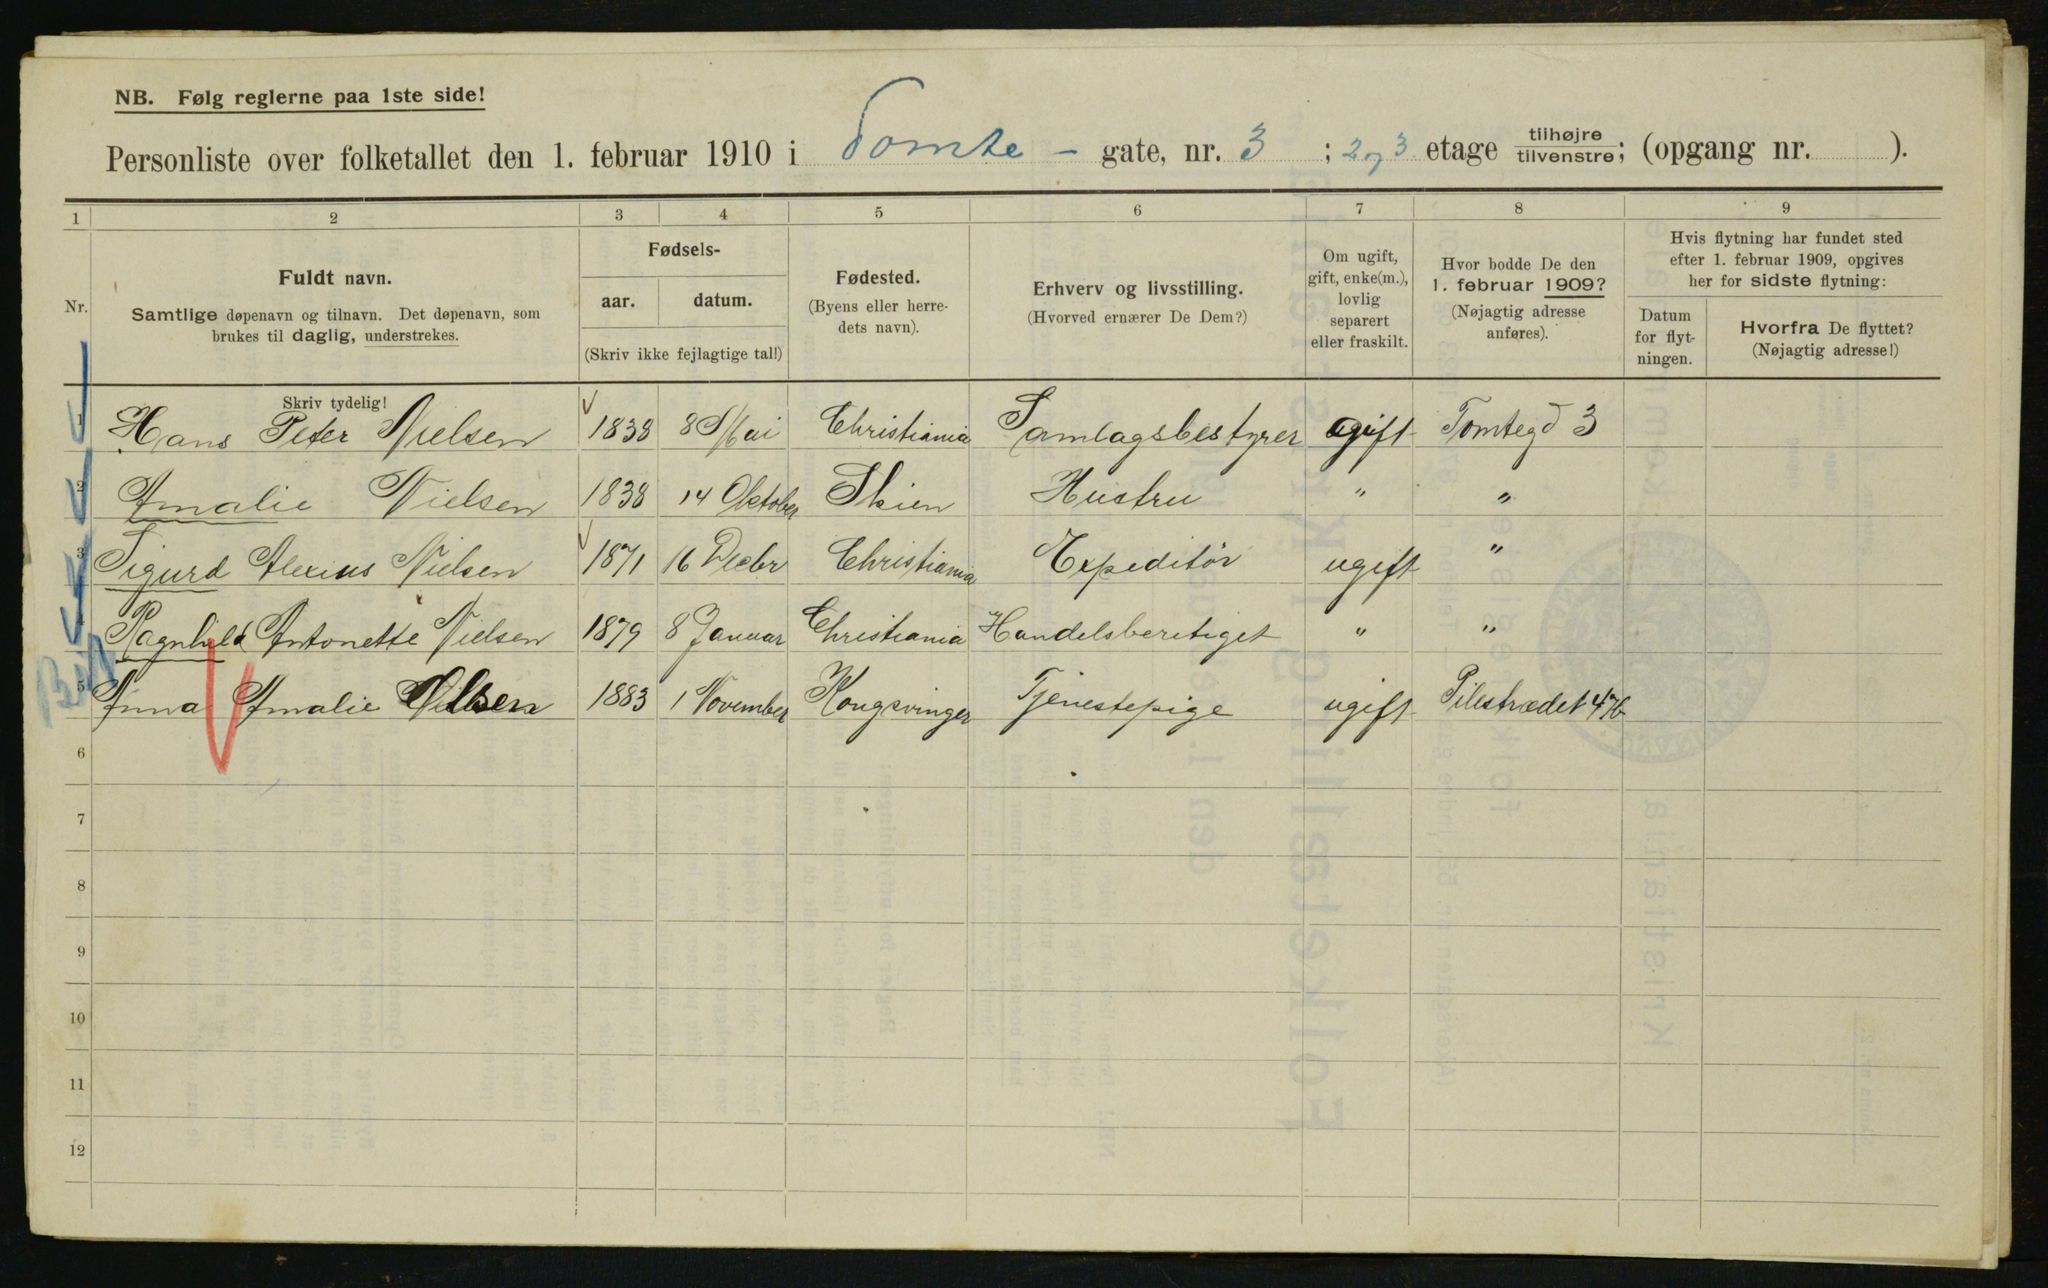 NB. Følg reglerne paa 1ste side!
Personliste over folketallet den 1. februar 1910 i Tomte - gate, nr. 3 ; 2 og 3 etage tilhøjre tilvenstre; (opgang nr. ).
1 2 3 4 5 6 7 8 9
Nr.
Fuldt navn.
Samtlige døpenavn og tilnavn. Det døpenavn, som
brukes til daglig, understrekes.
Skriv tydelig!
Fødsels-
aar. datum.
(Skriv ikke fejlagtige tal!)
Fødested.
(Byens eller herre-
dets navn).
Erhverv og livsstilling.
(Hvorved ernærer De Dem?)
Om ugift,
gift, enke(m.),
lovlig
separert
eller fraskilt.
Hvor bodde De den
1. februar 1909?
(Nøjagtig adresse
anføres).
Hvis flytning har fundet sted
efter 1. februar 1909, opgives
her for sidste flytning:
Datum
for flyt-
ningen.
Hvorfra De flyttet?
(Nøjagtig adresse!)
1 Hans Peter Nielsen 1838 8 Mai Christiania Samlagsbestyrer gift Tomtegd 3
2 Amalie Nielsen 1838 14 Oktober Skien Hustru " "
3 Sigurd Alexius Nielsen 1871 16 Decbr Christiania Expeditör ugift "
4 Ragnhild Antonette Nielsen 1879 8 Januar Christiania Handelsberetiget " "
5 Anna Amalie Olsen 1883 1 November Kongsvinger Tjenestepige ugift Pilestrædet 47b
6
7
8
9
10
11
12